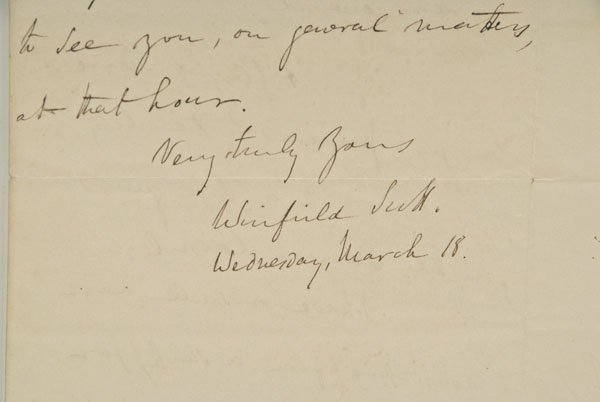 to see you, on general matters,
at that hour.
Very truly yours
Winfield Scott.
Wednesday, March 18.